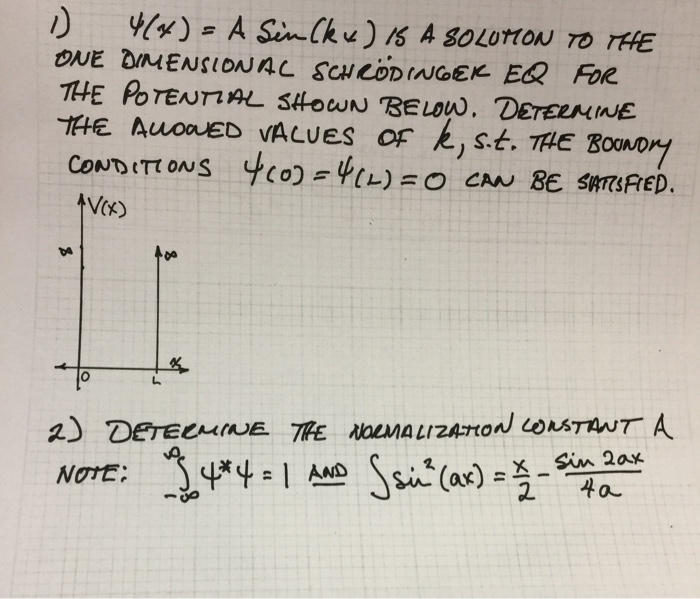 1) ψ(x) = A Sin(kx) IS A SOLUTION TO THE
ONE DIMENSIONAL SCHRÖDINGER EQ FOR
THE POTENTIAL SHOWN BELOW. DETERMINE
THE ALLOWED VALUES OF k, s.t. THE BOUNDRY
CONDITIONS ψ(0) = ψ(L) = 0 CAN BE SATISFIED.
V(x)
∞ ∞
x
0 L
2) DETERMINE THE NORMALIZATION CONSTANT A
NOTE: ∫_{-∞}^{∞} ψ*ψ = 1 AND ∫ sin²(ax) = x/2 - sin 2ax/4a